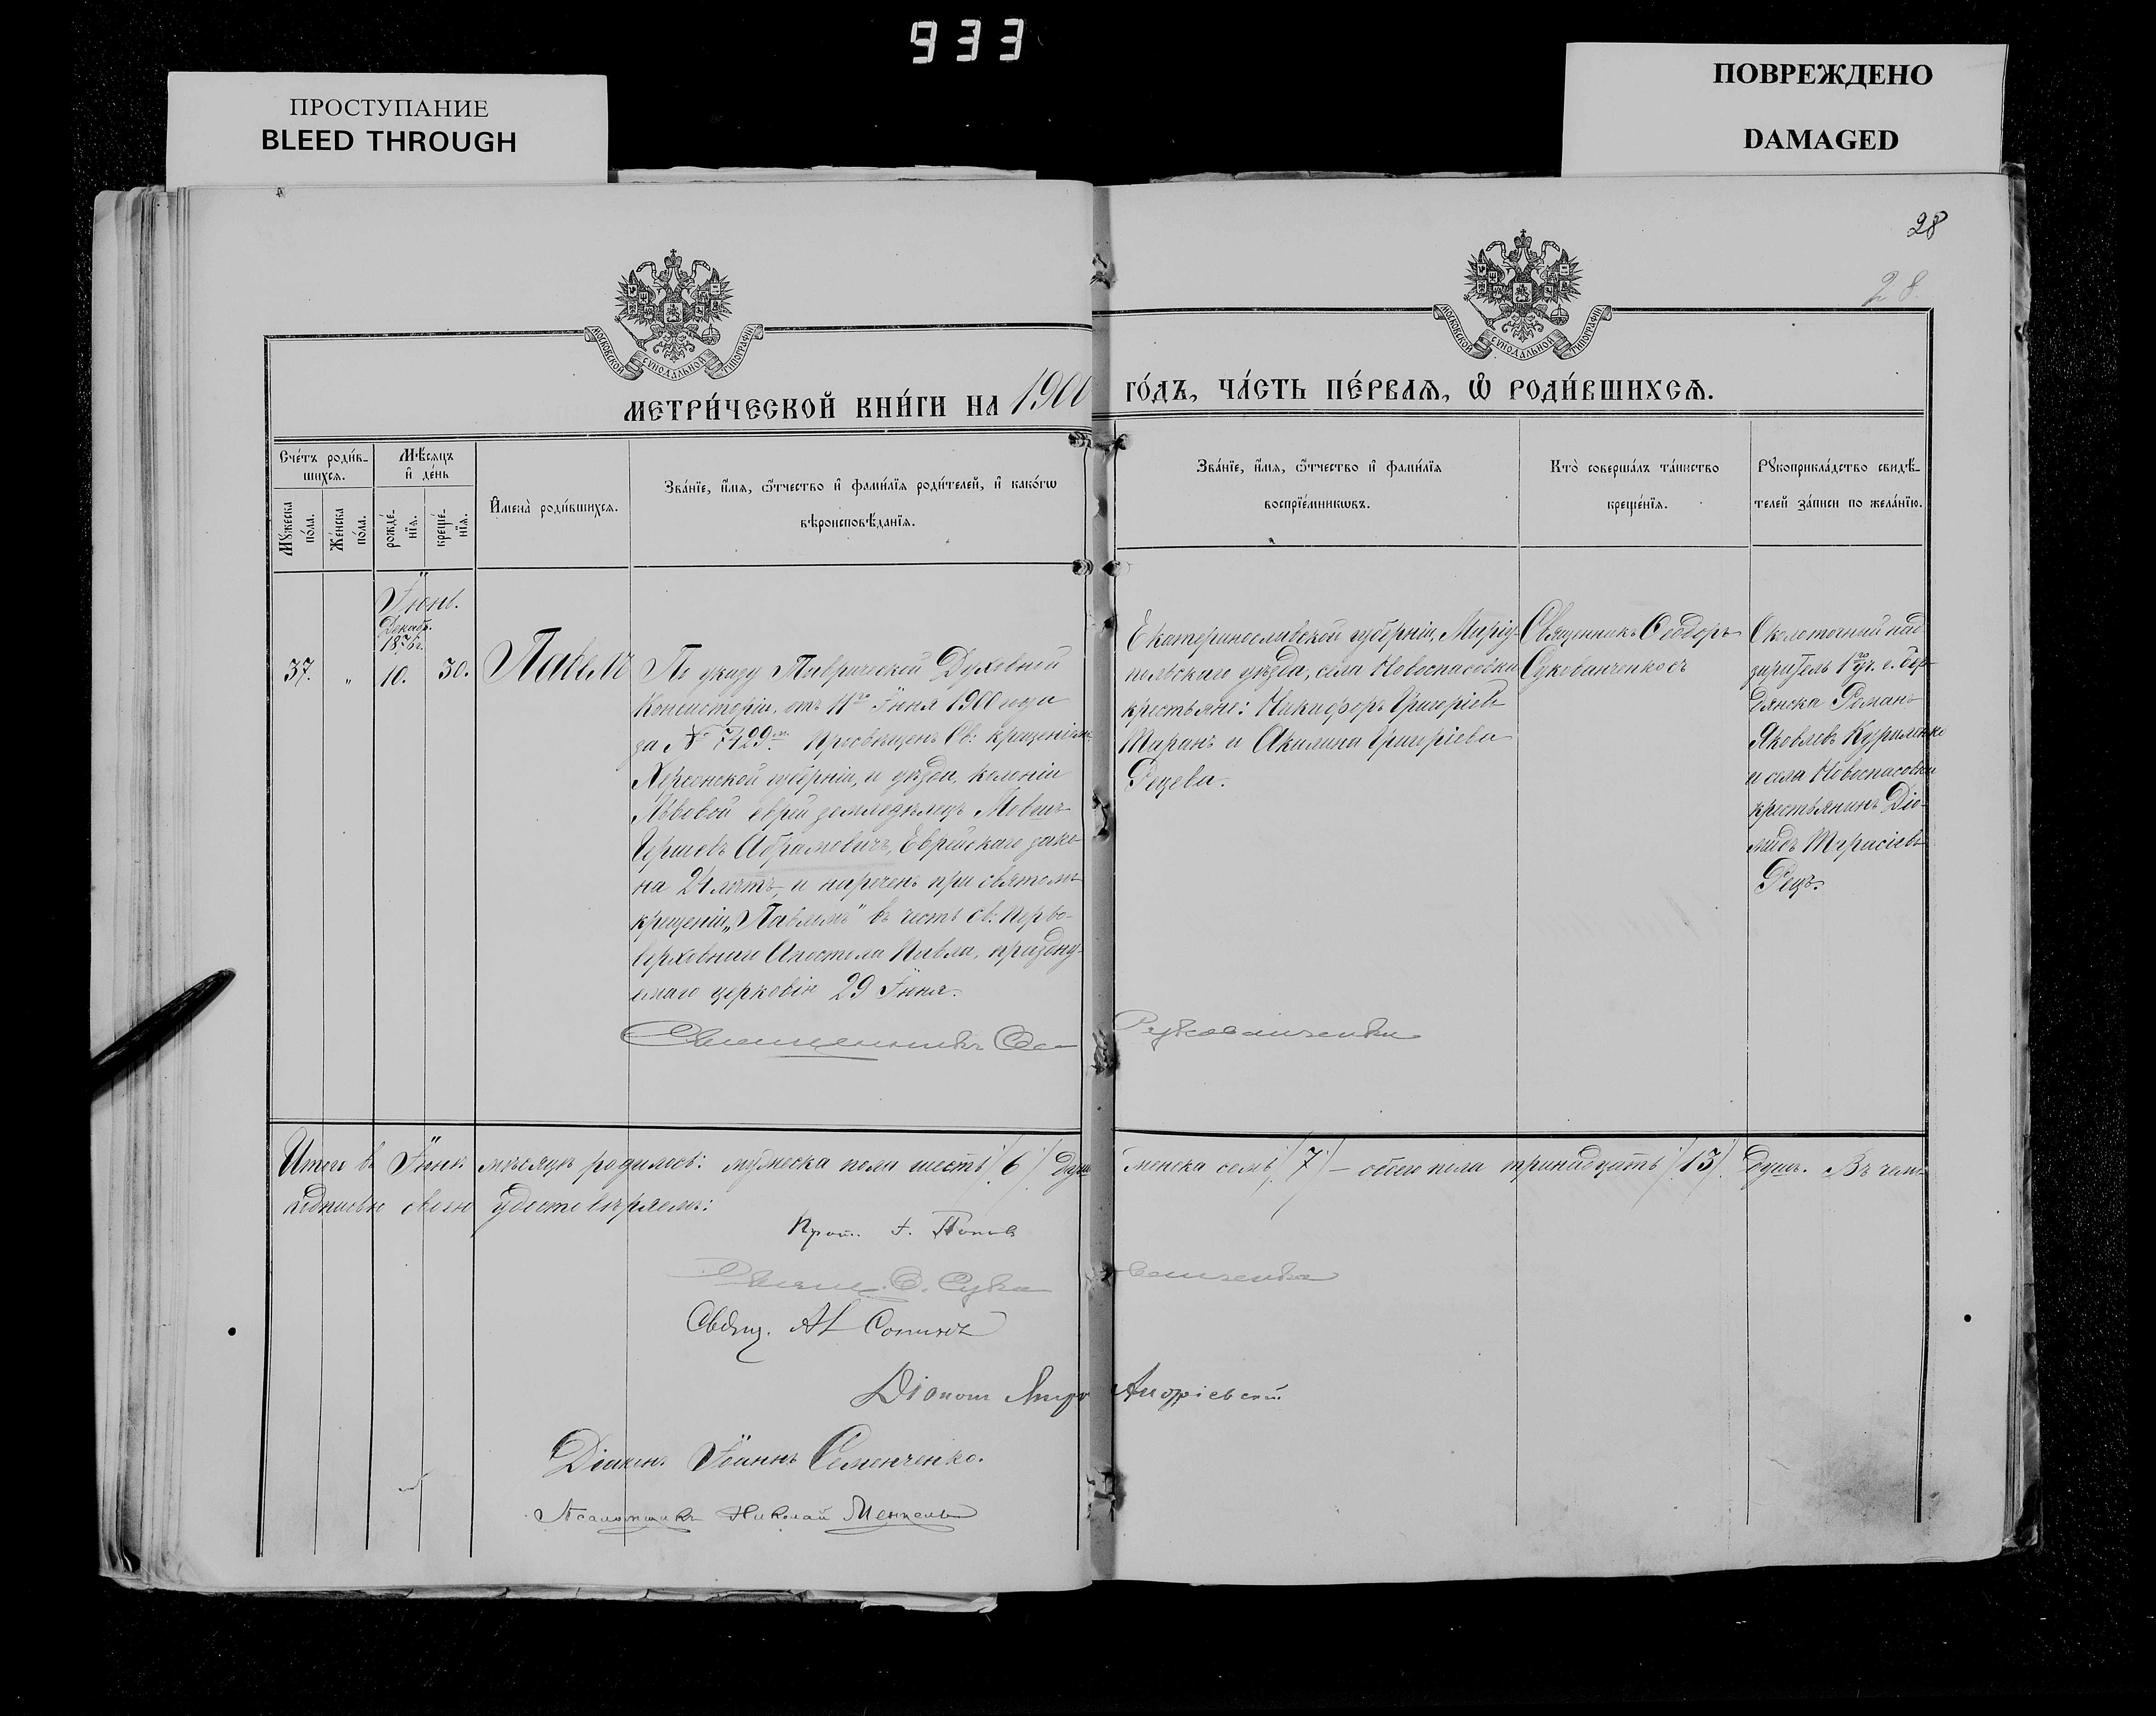 933
ПРОСТУПАНИЕ
BLEED THROUGH
ПОВРЕЖДЕНО
DAMAGED
28
28.
МОСКОВСКОЙ СѴНОДАЛЬНОЙ ТИПОГРАФІИ
МОСКОВСКОЙ СѴНОДАЛЬНОЙ ТИПОГРАФІИ
МЕТРИ́ЧЕСКОЙ КНИ́ГИ НА 1900
ГО́ДЪ, ЧА́СТЬ ПЕ́РВАѦ, Ѡ҆ РОДИ́ВШИХСѦ.
Сче́тъ роди́в-
шихсѧ.
Мꙋ́жеска
по́ла.
Же́нска
по́ла.
Мѣ́сяцъ
и҆ де́нь
рожде́-
нїѧ.
креще́-
нїѧ.
И҆мена̀ роди́вшихсѧ.
Зва́нїе, и҆́мѧ, ѻ҆́тчество и҆ фами́лїѧ роди́телей, и҆ како́гѡ
вѣроисповѣ́данїѧ.
Зва́нїе, и҆́мѧ, ѻ҆́тчество и҆ фами́лїѧ
воспрїе́мникѡвъ.
Кто̀ соверша́лъ та́инство
креще́нїѧ.
Рꙋкоприкла́дство свидѣ́-
телей за́писи по жела́нїю.
Іюнь.
Декабр.
1876 г.
37.
"
10.
30.
Павелъ
По указу Таврической Духовной
Консисторіи, отъ 11го Іюня 1900 года
за № 7429м. Просвѣщенъ Св: крещеніемъ
Херсонской губерніи, и уѣзда, колоніи
Львовой еврей земледѣлецъ Мовша
Гершевъ Абрамовичъ, Еврейскаго зако-
на 24 лѣтъ, и нареченъ при святомъ
крещеніи „Павломъ" въ честь св. Перво-
верховнаго Апостола Павла, празdну-
емаго церковію 29 Іюня.
Священникъ Ѳео
Екатеринославской губерніи, Маріу-
польскаго уѣзда, села Новоспасовки
крестьяне: Никифоръ Григоріевъ
Таранъ и Акилина Григоріева
Рецева.
Священникъ Ѳеодоръ
Сукованченковъ
Околоточный над-
зиратель 1го уч. г. Бер-
дянска Романъ
Яковлевъ Куриленко
и села Новоспасовки
крестьянинъ Діо-
мидъ Тарасіевъ
Рецъ.
Итого въ Іюнѣ мѣсяцѣ родилось: мужеска пола шесть /6/ душъ женска семь /7/ — обоего пола тринадцать /13/ душъ. Въ чемъ
подписью своею удостовѣряемъ:
Прот. І. Поповъ
Свящ. Ѳ. Сукованченко
Свящ.
Діаконъ Андріевскій
Діаконъ Іоаннъ Семенченко.
Псаломщикъ Николай